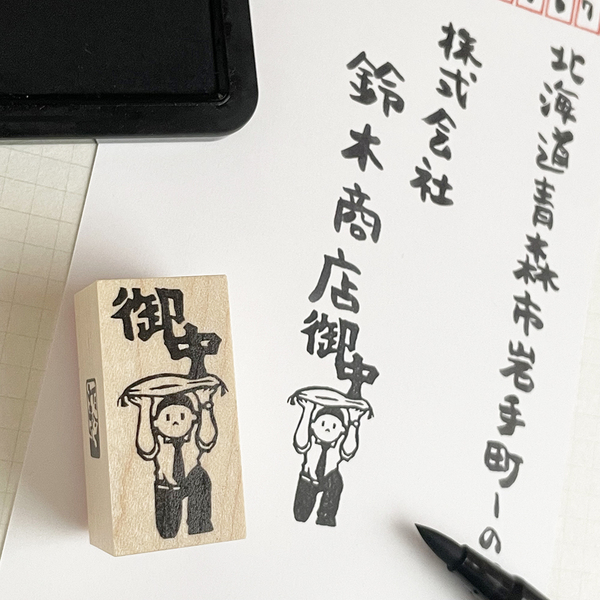 北海道青森市岩手町一の
株式会社
鈴木商店御中
御中